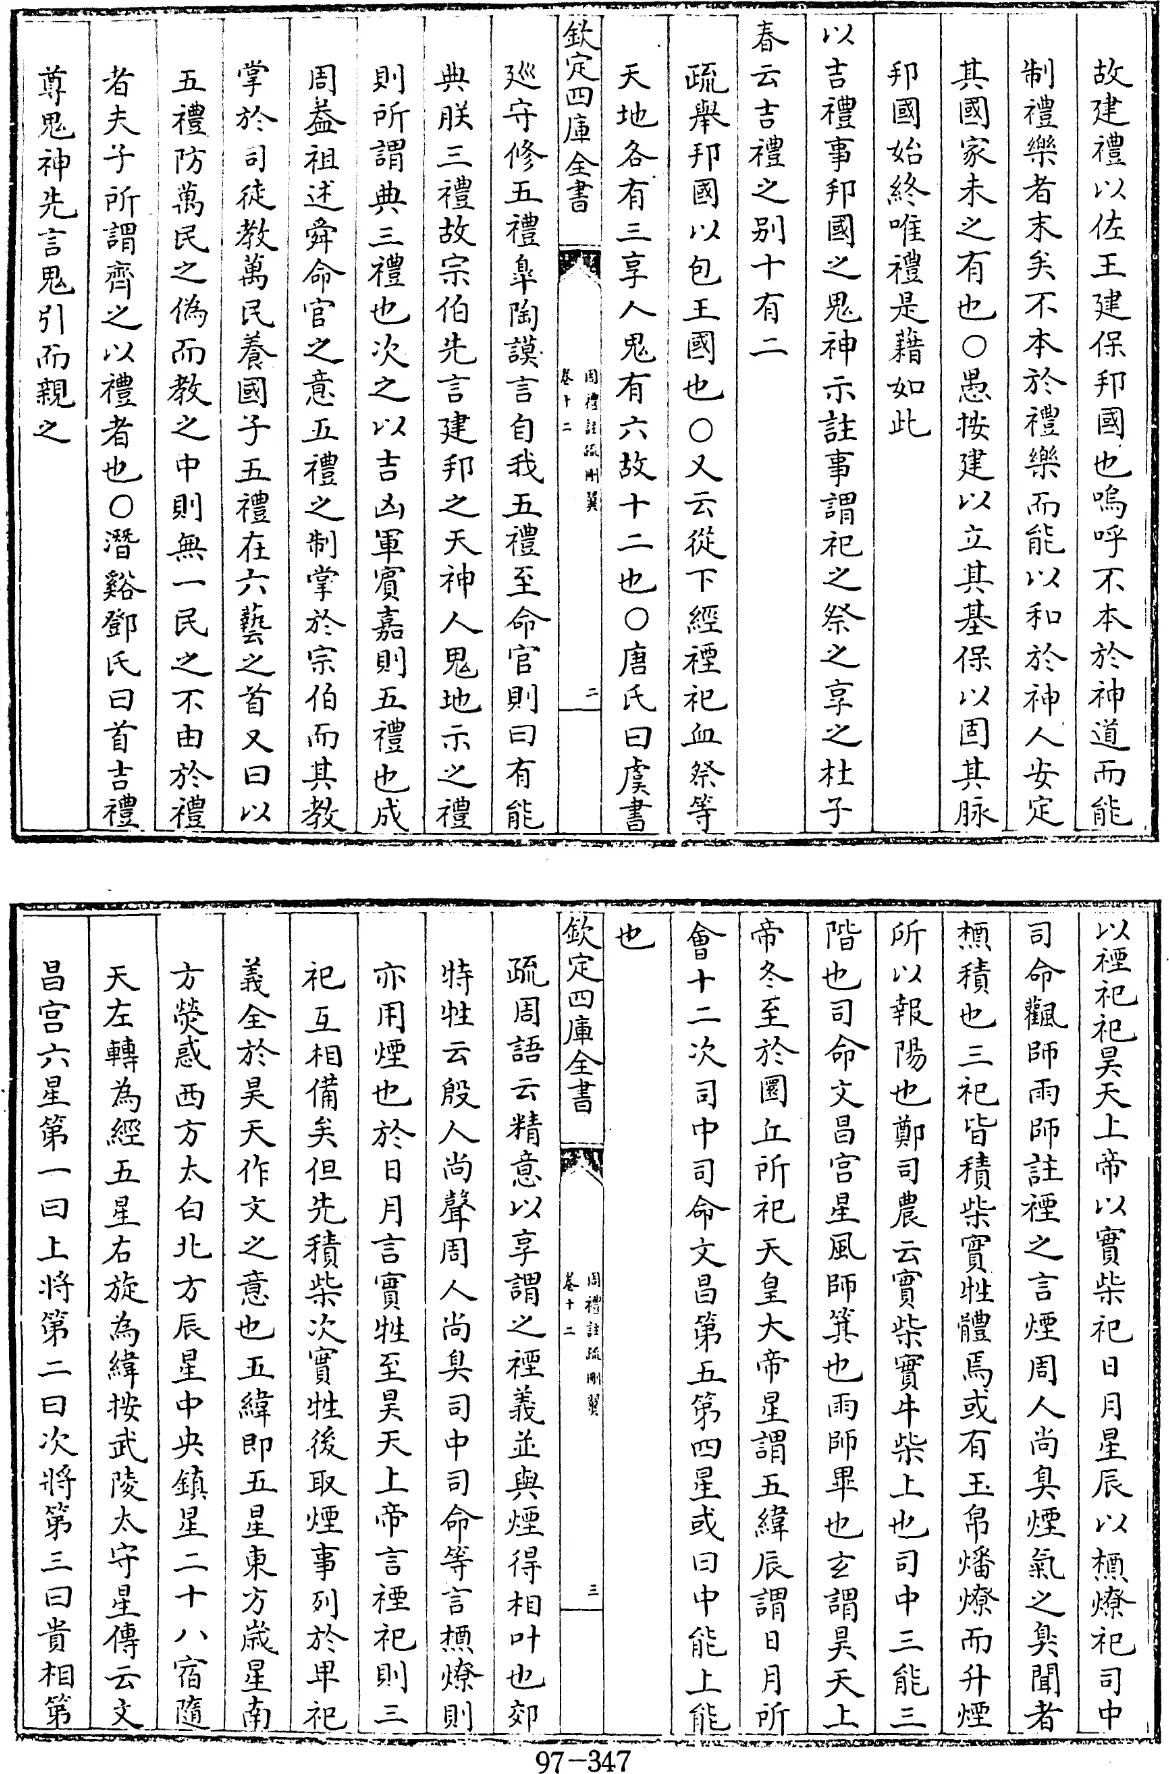 故建禮以佐王建保邦國也嗚呼不本於神道而能
制禮樂者末矣不本於禮樂而能以和於神人安定
其國家未之有也〇愚按建以立其基保以固其脉
邦國始終唯禮是藉如此
以吉禮事邦國之鬼神示註事謂祀之祭之享之杜子
春云吉禮之别十有二
疏舉邦國以包王國也〇又云從下經禋祀血祭等
天地各有三享人鬼有六故十二也〇唐氏曰虞書
欽定四庫全書
周禮註疏刪翼
卷十二
二
廵守修五禮臯陶謨言自我五禮至命官則曰有能
典朕三禮故宗伯先言建邦之天神人鬼地示之禮
則所謂典三禮也次之以吉凶軍賓嘉則五禮也成
周葢祖述舜命官之意五禮之制掌於宗伯而其教
掌於司徒教萬民養國子五禮在六藝之首又曰以
五禮防萬民之偽而教之中則無一民之不由於禮
者夫子所謂齊之以禮者也〇潛谿鄧氏曰首吉禮
尊鬼神先言鬼引而親之
以禋祀祀昊天上帝以實柴祀日月星辰以槱燎祀司中
司命飌師雨師註禋之言煙周人尚臭煙氣之臭聞者
槱積也三祀皆積柴實牲體焉或有玉帛燔燎而升煙
所以報陽也鄭司農云實柴實牛柴上也司中三能三
階也司命文昌宫星風師箕也雨師畢也玄謂昊天上
帝冬至於圜丘所祀天皇大帝星謂五緯辰謂日月所
會十二次司中司命文昌第五第四星或曰中能上能
也
欽定四庫全書
周禮註疏刪翼
卷十二
三
疏周語云精意以享謂之禋義並與煙得相叶也郊
特牲云殷人尚聲周人尚臭司中司命等言槱燎則
亦用煙也於日月言實牲至昊天上帝言禋祀則三
祀互相備矣但先積柴次實牲後取煙事列於卑祀
義全於昊天作文之意也五緯即五星東方歲星南
方熒惑西方太白北方辰星中央鎮星二十八宿隨
天左轉為經五星右旋為緯按武陵太守星傳云文
昌宫六星第一曰上將第二曰次將第三曰貴相第
97-347